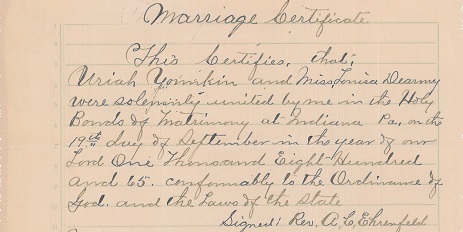 Marriage Certificate
This Certifies, that;
Uriah Yomkin and Miss Louisa Dearmy
were solemnly united by me in the Holy
Bonds of Matrimony at Indiana Pa, on the
19th day of September in the year of our
Lord One Thousand Eight-Hundred
and 65. conformably to the Ordinance of
God. and the Laws of the State
Signed: Rev. A. C. Ehrenfeld